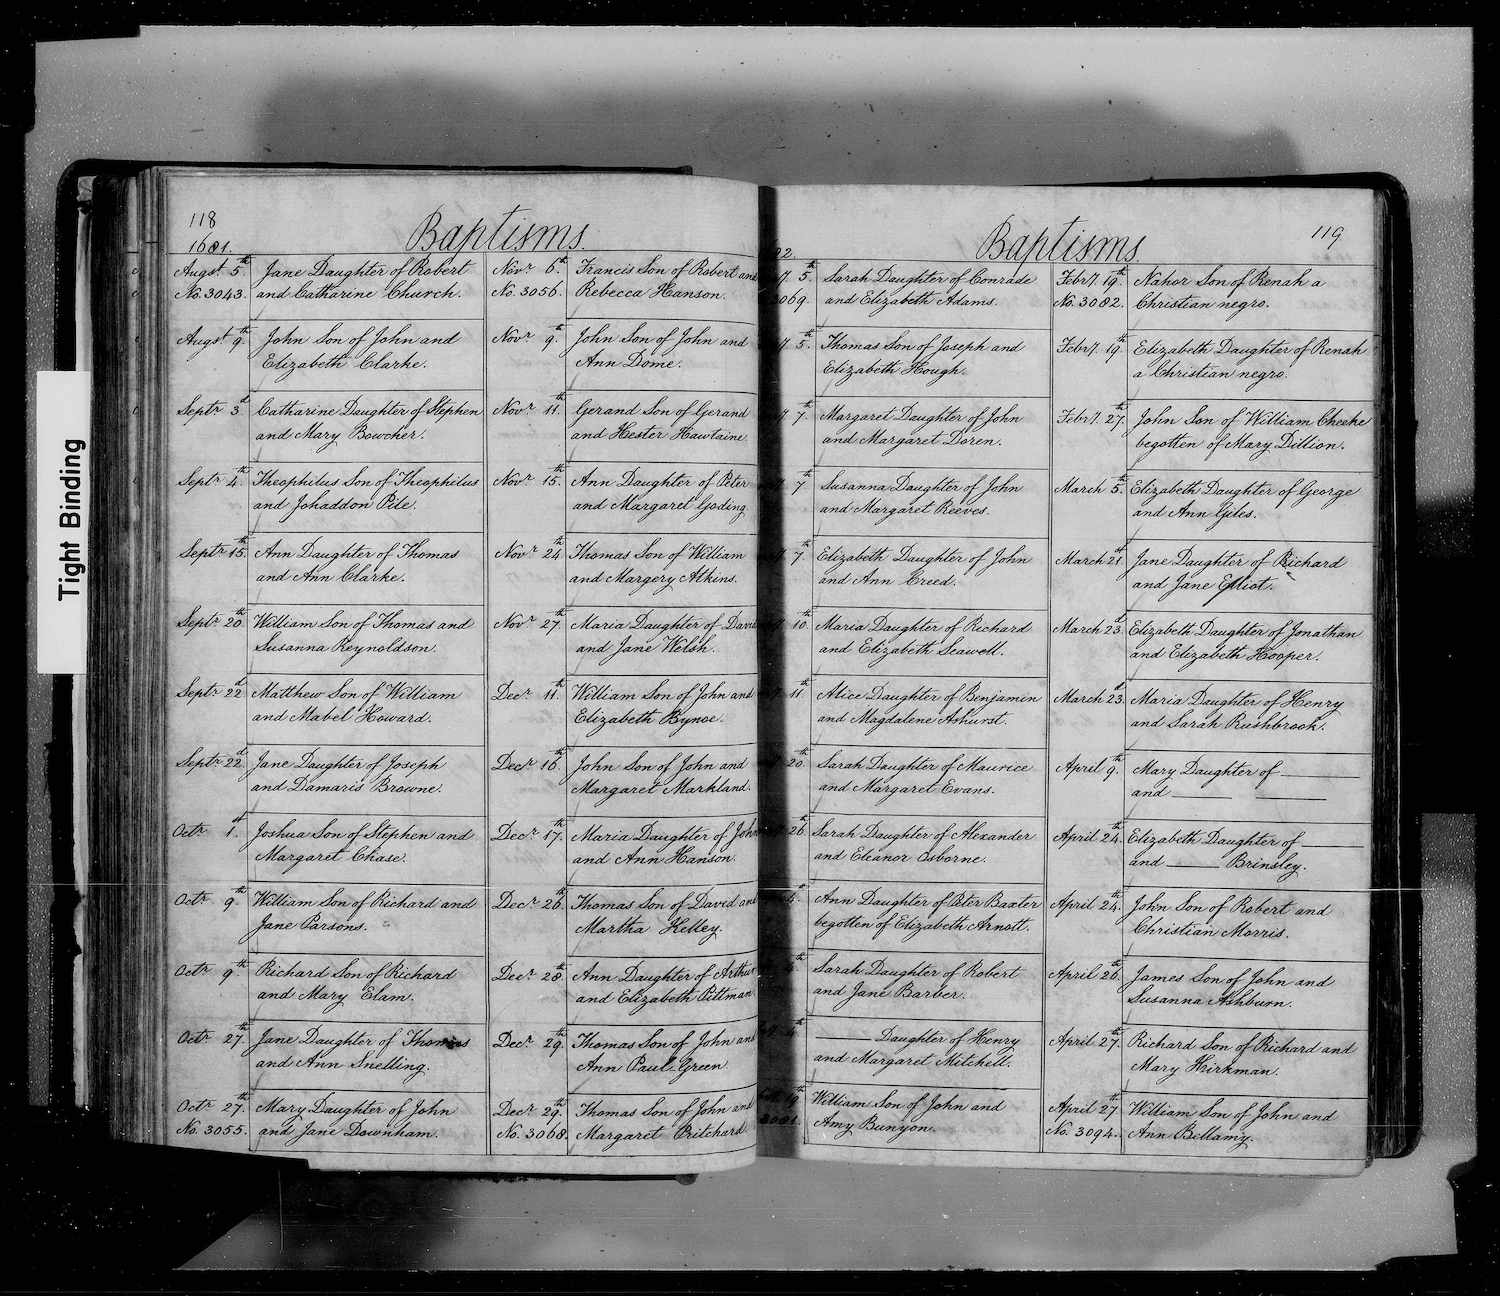 Tight Binding
118
1681.
Baptisms.
Augst. 5th Jane Daughter of Robert
No. 3043. and Catharine Church.
Augst. 9th John Son of John and
Elizabeth Clarke.
Septr. 3d Catharine Daughter of Stephen
and Mary Bowcher.
Septr. 4th Theophilus Son of Theophilus
and Johaddon Pile.
Septr. 15th Ann Daughter of Thomas
and Ann Clarke.
Septr. 20th William Son of Thomas and
Susanna Reynoldson.
Septr. 22d Matthew Son of William
and Mabel Howard.
Septr. 22d Jane Daughter of Joseph
and Damaris Browne.
Octr. 1st Joshua Son of Stephen and
Margaret Chase.
Octr. 9th William Son of Richard and
Jane Parsons.
Octr. 9th Richard Son of Richard
and Mary Elam.
Octr. 27th Jane Daughter of Thomas
and Ann Snelling.
Octr. 27th Mary Daughter of John
No. 3055. and Jane Downham.
Novr. 6th Francis Son of Robert and
No. 3056. Rebecca Hanson.
Novr. 9th John Son of John and
Ann Dome.
Novr. 11th Gerand Son of Gerand
and Hester Hawtaine
Novr. 15th Ann Daughter of Peter
and Margaret Goding
Novr. 24th Thomas Son of William
and Margery Atkins.
Novr. 27th Maria Daughter of David
and Jane Welsh.
Decr. 11th William Son of John and
Elizabeth Bynoe.
Decr. 16th John Son of John and
Margaret Markland.
Decr. 17th Maria Daughter of John
and Ann Hanson.
Decr. 26th Thomas Son of David and
Martha Kelley.
Decr. 28th Ann Daughter of Arthur
and Elizabeth Pittman
Decr. 29th Thomas Son of John and
Ann Paul Green.
Decr. 29th Thomas Son of John and
No. 3068. Margaret Pritchard.
Baptisms.
119
5th Sarah Daughter of Conrade
3069 and Elizabeth Adams.
5th Thomas Son of Joseph and
Elizabeth Hough.
7th Margaret Daughter of John
and Margaret Doren.
7th Susanna Daughter of John
and Margaret Reeves.
7th Elizabeth Daughter of John
and Ann Creed.
10th Maria Daughter of Richard
and Elizabeth Seawell.
11th Alice Daughter of Benjamin
and Magdalene Ashurst.
20th Sarah Daughter of Maurice
and Margaret Evans.
26th Sarah Daughter of Alexander
and Eleanor Osborne.
Ann Daughter of Peter Baxter
begotten of Elizabeth Arnott.
Sarah Daughter of Robert
and Jane Barber.
Daughter of Henry
and Margaret Mitchell.
William Son of John and
3081 Amy Bunyon.
Febry. 19th Nahor Son of Renah a
No. 3082. Christian negro.
Febry. 19th Elizabeth Daughter of Renah
a Christian negro.
Febry. 27th John Son of William Cheeke
begotten of Mary Dillion.
March 5th Elizabeth Daughter of George
and Ann Giles.
March 21st Jane Daughter of Richard
and Jane Elliot.
March 23d Elizabeth Daughter of Jonathan
and Elizabeth Hooper.
March 23d Maria Daughter of Henry
and Sarah Rushbrook.
April 9th Mary Daughter of
and
April 24th Elizabeth Daughter of
and Brinsley.
April 24th John Son of Robert and
Christian Morris.
April 26th James Son of John and
Susanna Ashburn.
April 27th Richard Son of Richard and
Mary Hirkman.
April 27th William Son of John and
No. 3094. Ann Bellamy.